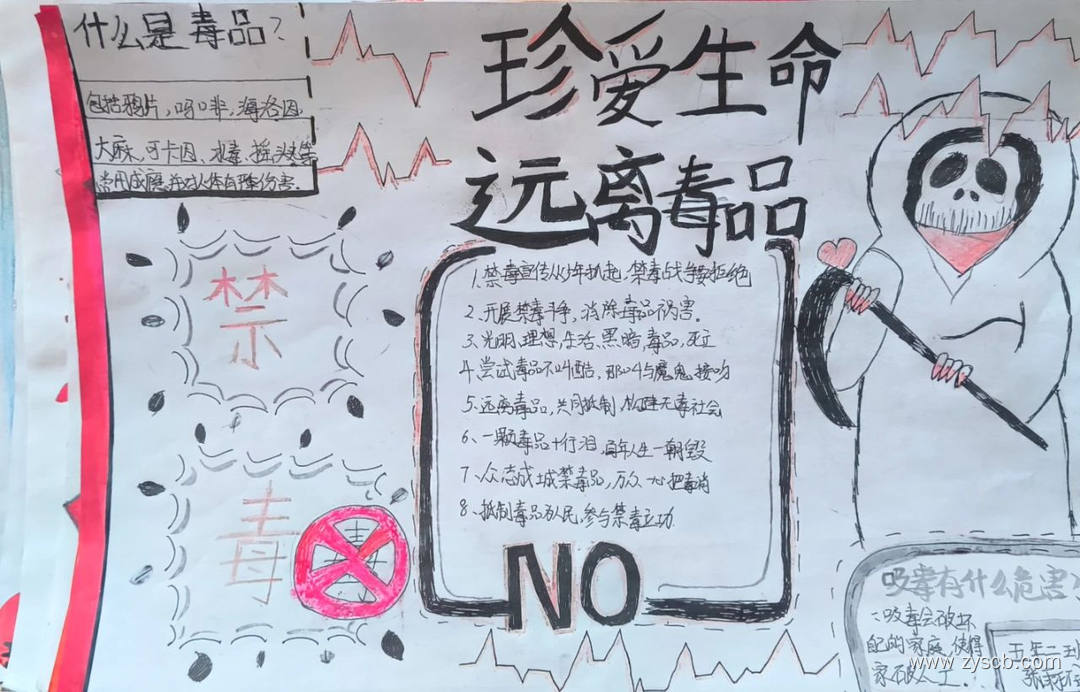 什么是毒品?
包括鸦片,吗啡,海洛因
大麻、可卡因、冰毒、摇头丸等
常用成瘾,并对人体有一定伤害.
珍爱生命
远离毒品
禁
毒
毒
1.禁毒宣传从少年抓起,禁毒战
2.开展禁毒斗争,消除毒品祸害.
3、光明,理想,生活、黑暗,毒品,死亡
4、尝试毒品不叫酷、那叫与魔鬼接吻
5、远离毒品,共同抵制,构建无毒社会
6、一颗毒品十行泪,百年人生一朝毁
7、众志成城禁毒品,万众一心把毒消
8、抵制毒品为人民,参与禁毒立功
NO
吸毒有什么危害?
吸毒会破坏
自己的家庭,使得
家破人亡.
五年二班
www.zyscb.com